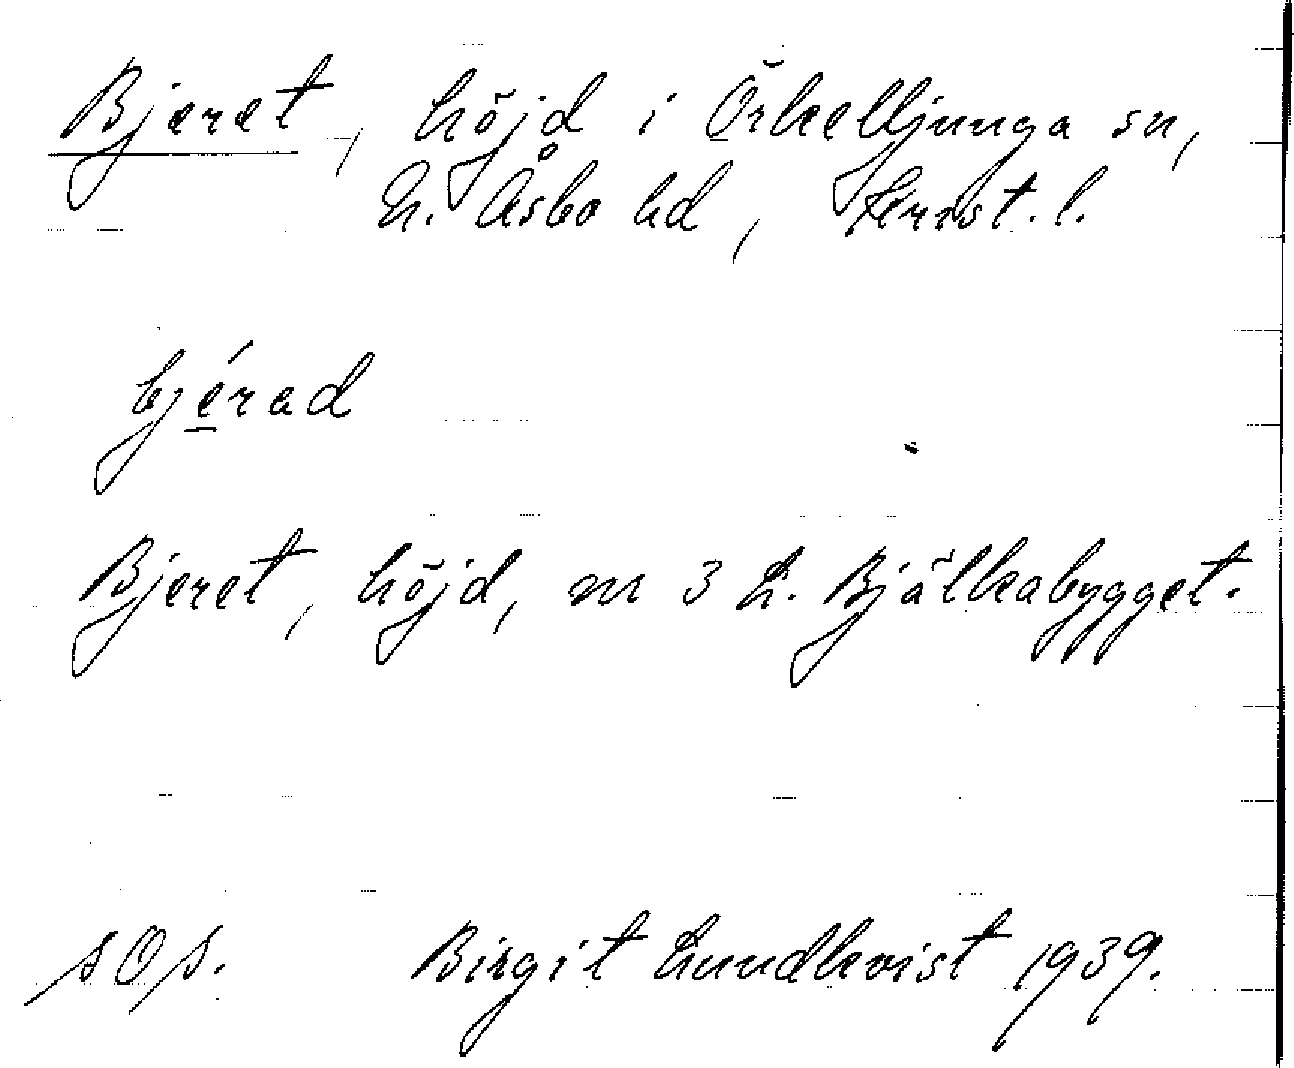 Bjeret, höjd i Örkelljunga sn,
N. Åsbo hd, Krist. l.
bjérad
Bjeret, höjd, m 3 L. Bjälkabygget.
Birgit Lundkvist 1939.